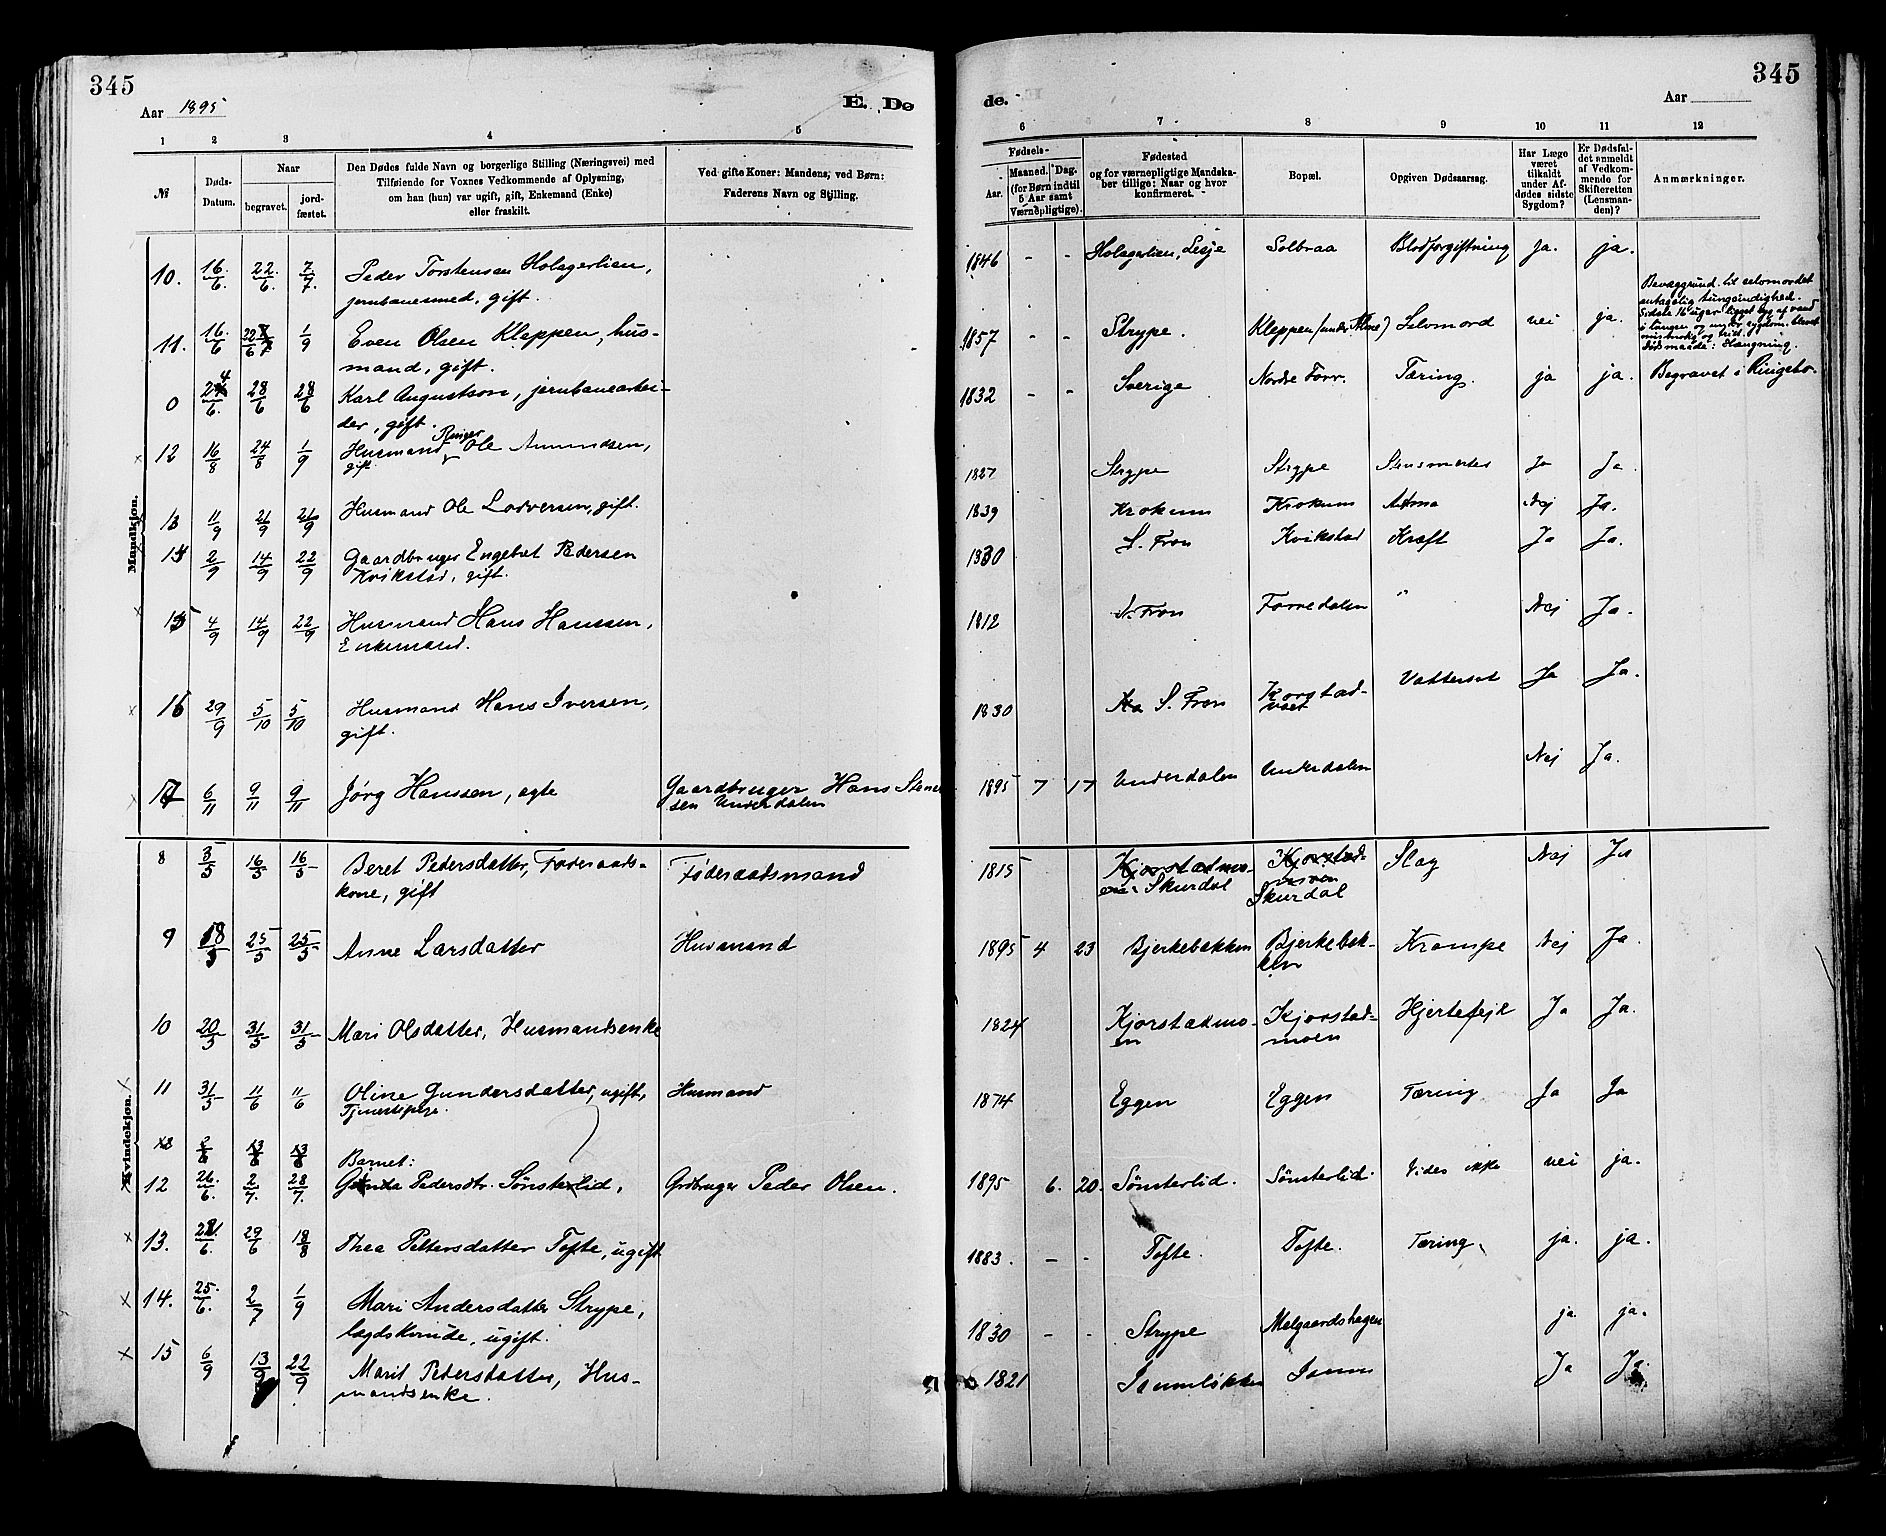 345
345
Aar 1895
E. Dø
de.
Aar
1 2 3 4 5 6 7 8 9 10 11 12
№
Døds-
Datum.
Naar
begravet.
jord-
fæstet.
Den Dødes fulde Navn og borgerlige Stilling (Næringsvei) med
Tilføiende for Voxnes Vedkommende af Oplysning,
om han (hun) var ugift, gift, Enkemand (Enke)
eller fraskilt.
Ved gifte Koner: Mandens, ved Børn:
Faderens Navn og Stilling.
Fødsels-
Aar.
Maaned. Dag.
(for Børn indtil
5 Aar samt
Værnepligtige).
Fødested
og for værnepligtige Mandska-
ber tillige: Naar og hvor
konfirmeret.
Bopæl.
Opgiven Dødsaarsag.
Har Læge
været
tilkaldt
under Af-
dødes sidste
Sygdom?
Er Dødsfal-
det anmeldt
af Vedkom-
mende for
Skifteretten
(Lensman-
den)?
Anmærkninger.
Mandkjøn.
10. 16/6 22/6 7/7. Peder Torstensen Holagerlien, 1846 - - Holagerlien, Lesje Solbraa Blodforgiftning ja. ja.
jernbanesmed, gift.
11. 16/6 1/9 Even Olsen Kleppen, hus- 1857 - - Strype. Kleppen (under) Selvmord nei ja.
mand, gift.
Bevæggrund til selvmordet
antagelig tungsindighed.
Dødsmaade: Hængning.
0 24/6. 28/6 28/6 Karl Augustson, jernbanearbei- 1832 - - Sverige Nordre Forr. Tæring. ja ja. Begravet i Ringebo.
der, gift.
12 16/8 24/8 1/9 Husmand Ringer Ole Amundsen, 1827 Strype Strype Ja Ja
gift.
13 11/9 21/9 21/9 Husmand Ole Lodversen, gift. 1839 Krokum Krokum Astma Nej Ja.
14 2/9 14/9 22/9 Gaardbruger Engebret Pedersen 1830 S. Fron Kvikstad Kræft Ja Ja.
Kvikstad, gift.
15 4/9 14/9 22/9 Husmand Hans Hanssen, 1812 N. Fron Forredalen " Nej Ja.
Enkemand.
16 29/9 5/10 5/10 Husmand Hans Iversen, 1830 S. Fron Vattersot Ja Ja.
gift.
17 6/11 9/11 9/11 Jørg Hanssen, ægte Gaardbruger Hans Stenersen 1895 7 17 Underdalen Underdalen Nej Ja.
Underdalen
Kvindekjøn.
8 3/5 16/5 16/5 Beret Pedersdatter, Føderaads- Føderaadsmand 1815 Kjorstadmoen Kjorstadmoen Slag Nej Ja
kone, gift Skurdal Skurdal
9 18/5 25/5 25/5 Anne Larsdatter Husmand 1895 4 23 Bjerkebækken Bjerkebæk- Krampe Nej Ja.
ken
10 20/5 31/5 31/5 Mari Olsdatter, Husmandsenke 1824 Kjorstadmo- Kjorstad- Hjertefejl Ja Ja.
en moen
11 31/5 11/6 11/6 Oline Gundersdatter, ugift, Husmand 1874 Eggen Eggen Tæring Ja Ja
Tjenestepige.
Barnet:
12 26/6. 2/7. 28/7. Pedersdtr. Sønsterlid, Grdbruger Peder Olsen. 1895 6. 20. Sønsterlid. Sønsterlid. Vides ikke nei ja.
13. 29/6 18/8 Thea Pettersdatter Tofte, ugift 1883. - - Tofte. Tofte. Tæring. ja. ja.
14. 25/6. 2/7 1/9 Mari Andersdatter Strype, 1830 - - Strype Melgaardshagen ja ja.
lægdskvinde, ugift.
15 6/9 13/9 22/9 Marit Pedersdatter, Hus- 1821 Ja Ja
mandsenke.